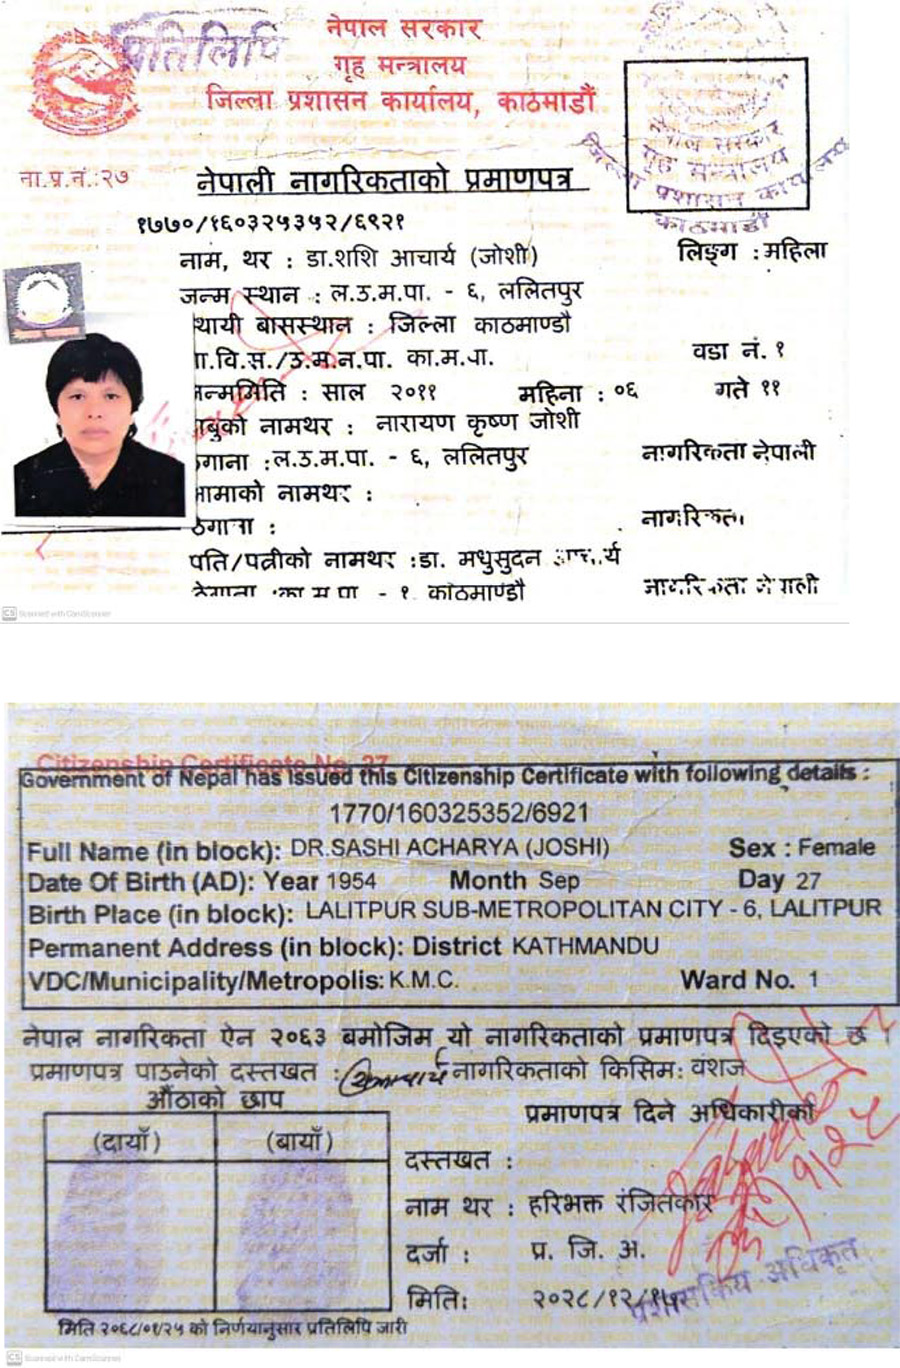 प्रतिलिपि
नेपाल सरकार
गृह मन्त्रालय
जिल्ला प्रशासन कार्यालय, काठमाडौं
ना.प्र.नं.:२७
नेपाली नागरिकताको प्रमाणपत्र
नेपाल सरकार
गृह मन्त्रालय
जिल्ला प्रशासन कार्यालय
काठमाडौं
१७७०/१६०३२५३५२/६९२१
नाम, थर : डा.शशि आचार्य (जोशी) लिङ्ग : महिला
जन्म स्थान : ल.उ.म.पा. - ६, ललितपुर
थायी बासस्थान : जिल्ला काठमाण्डौ
गा.वि.स./उ.म.न.पा. का.म.पा. वडा नं. १
जन्ममिति : साल २०११ महिना : ०६ गते ११
बाबुको नामथर : नारायण कृष्ण जोशी
ठेगाना : ल.उ.म.पा. - ६, ललितपुर नागरिकता नेपाली
आमाको नामथर :
ठेगाना : नागरिकता
पति/पत्नीको नामथर :डा. मधुसुदन आचार्य
ठेगाना :का म पा - १ काठमाण्डौ नागरिकता नेपाली
CS Scanned with CamScanner
Citizenship Certificate No. 27
Government of Nepal has issued this Citizenship Certificate with following details :
1770/160325352/6921
Full Name (in block): DR.SASHI ACHARYA (JOSHI) Sex : Female
Date Of Birth (AD): Year 1954 Month Sep Day 27
Birth Place (in block): LALITPUR SUB-METROPOLITAN CITY - 6, LALITPUR
Permanent Address (in block): District KATHMANDU
VDC/Municipality/Metropolis: K.M.C. Ward No. 1
नेपाल नागरिकता ऐन २०६३ बमोजिम यो नागरिकताको प्रमाणपत्र दिइएको छ ।
प्रमाणपत्र पाउनेको दस्तखत : नागरिकताको किसिम: वंशज
औंठाको छाप
(दायाँ) (बायाँ)
प्रमाणपत्र दिने अधिकारीको
दस्तखत :
नाम थर : हरिभक्त रंजितकार
दर्जा : प्र. जि. अ.
मिति: २०२८/१२/
प्रशासकिय अधिकृत
मिति २०६८/०१/२५ को निर्णयानुसार प्रतिलिपि जारी
CS Scanned with CamScanner